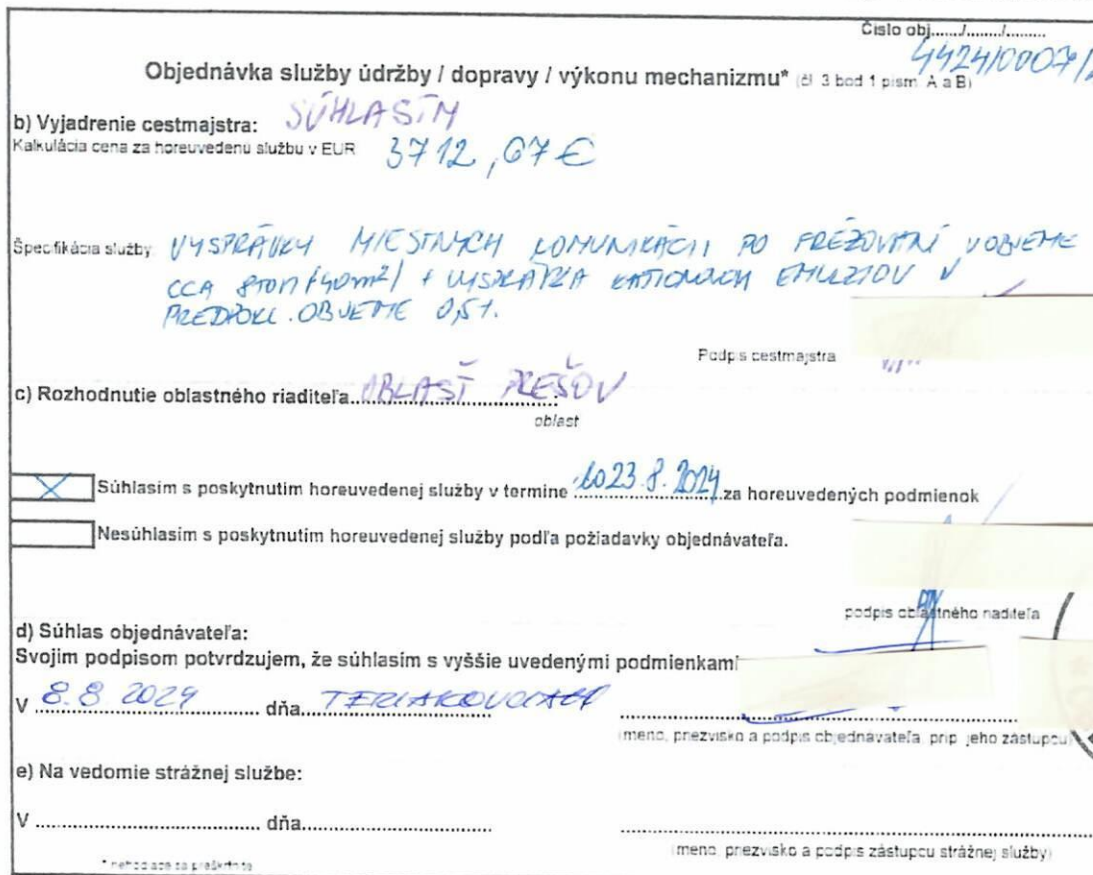 Číslo obj....../......../.........
4424/0007/2
Objednávka služby údržby / dopravy / výkonu mechanizmu* (čl. 3 bod 1 písm. A a B)
b) Vyjadrenie cestmajstra: SÚHLASÍM
Kalkulácia cena za horeuvedenú službu v EUR 3712,67 €
Špecifikácia služby: VYSPRÁVKY MIESTNYCH KOMUNIKÁCII PO FRÉZOVANÍ V OBJEME
CCA 8TON/40m²/ + VYSPRÁVKA KATIONOVOU EMULZIOU V
PREDPOKL. OBJEME 0,5t.
Podpis cestmajstra
c) Rozhodnutie oblastného riaditeľa OBLASŤ PREŠOV
oblasť
X Súhlasím s poskytnutím horeuvedenej služby v termíne do 23.8.2024 za horeuvedených podmienok
Nesúhlasím s poskytnutím horeuvedenej služby podľa požiadavky objednávateľa.
podpis oblastného riaditeľa
d) Súhlas objednávateľa:
Svojim podpisom potvrdzujem, že súhlasím s vyššie uvedenými podmienkami
V 8.8 2024 dňa TERIAKOVCIACH
(meno, priezvisko a podpis objednávateľa, príp. jeho zástupcu)
e) Na vedomie strážnej službe:
V ........................................ dňa........................................
(meno, priezvisko a podpis zástupcu strážnej služby)
* nehodiace sa preškrtnite